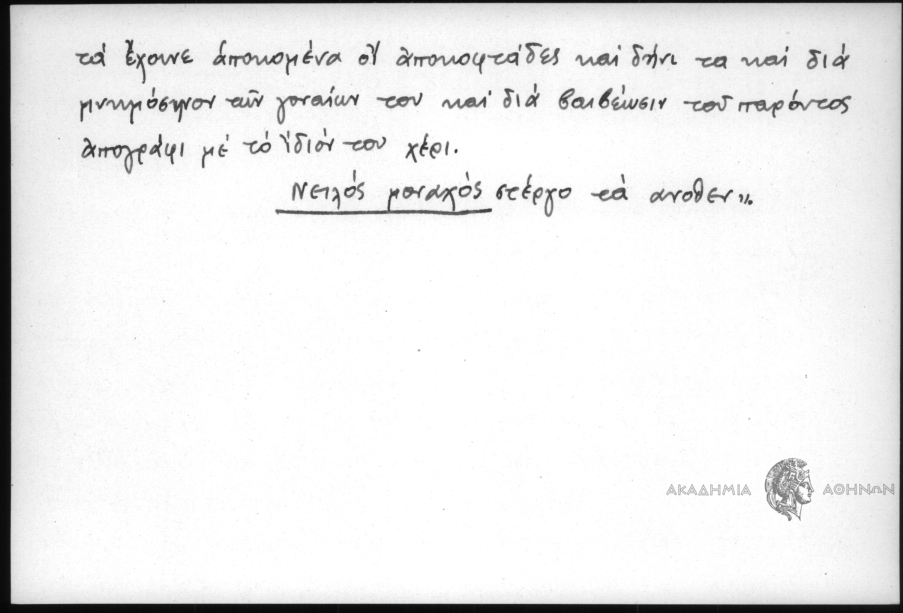 τά ἔχουνε ἀποκομένα οἱ ἀποκοφτάδες καί δήνι τα καί διά
μνημόσηνον τῶν γοναίων του καί διά βαιβέωσιν τοῦ παρόντος
ἀπογράφι μέ τό ἴδιόν του χέρι.
Νειλός μοναχός στέργο τά ανοθεν».
ΑΚΑΔΗΜΙΑ ΑΘΗΝΩΝ